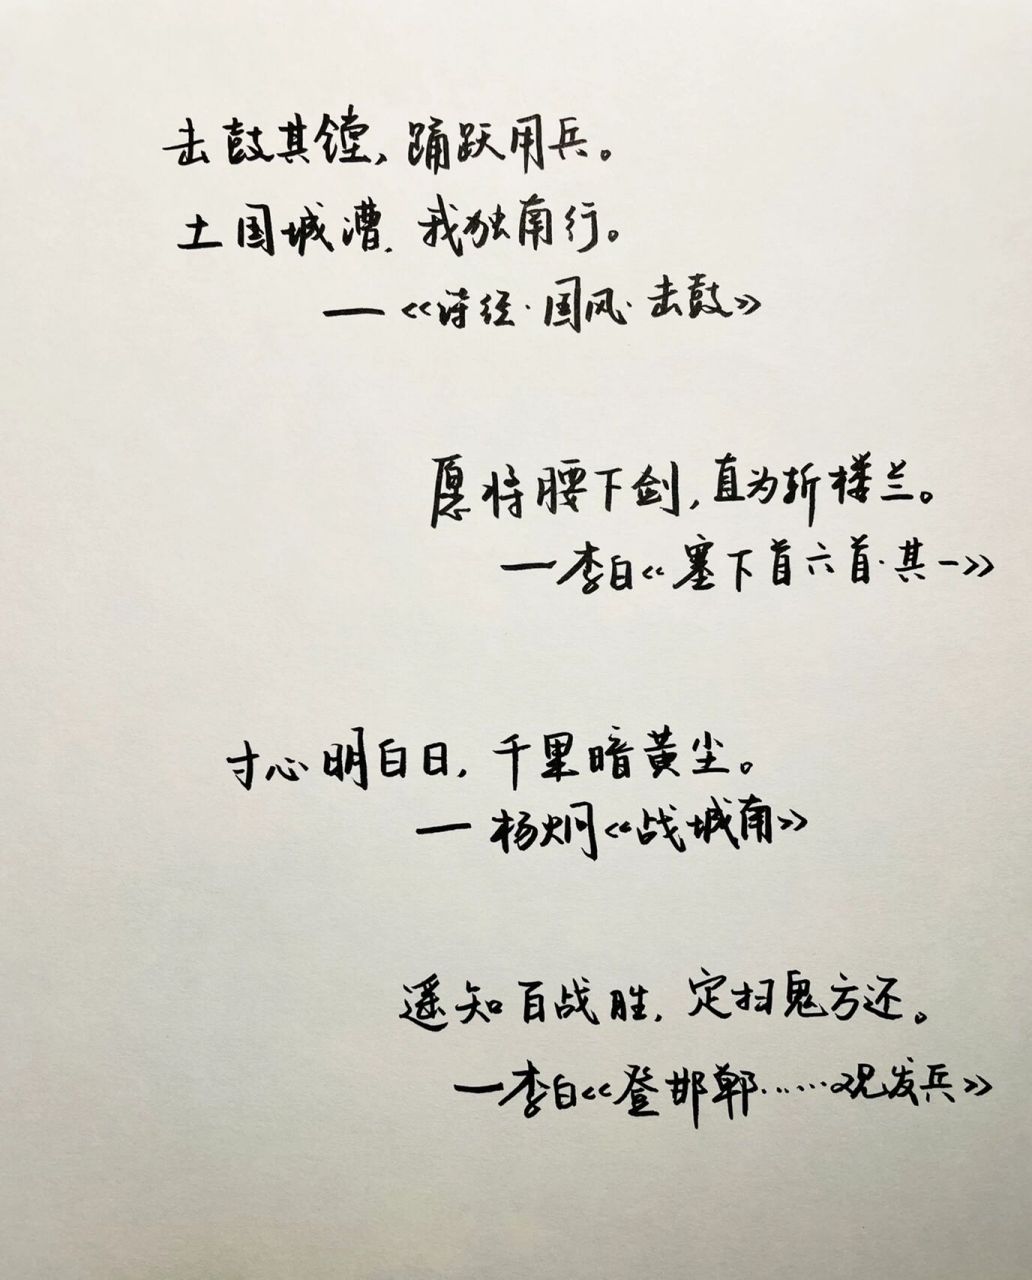 击鼓其镗,踊跃用兵。
土国城漕,我独南行。
—《诗经·国风·击鼓》
愿将腰下剑,直为斩楼兰。
—李白《塞下首六首·其一》
寸心明白日,千里暗黄尘。
—杨炯《战城南》
遥知百战胜,定扫鬼方还。
—李白《登邯郸……观发兵》